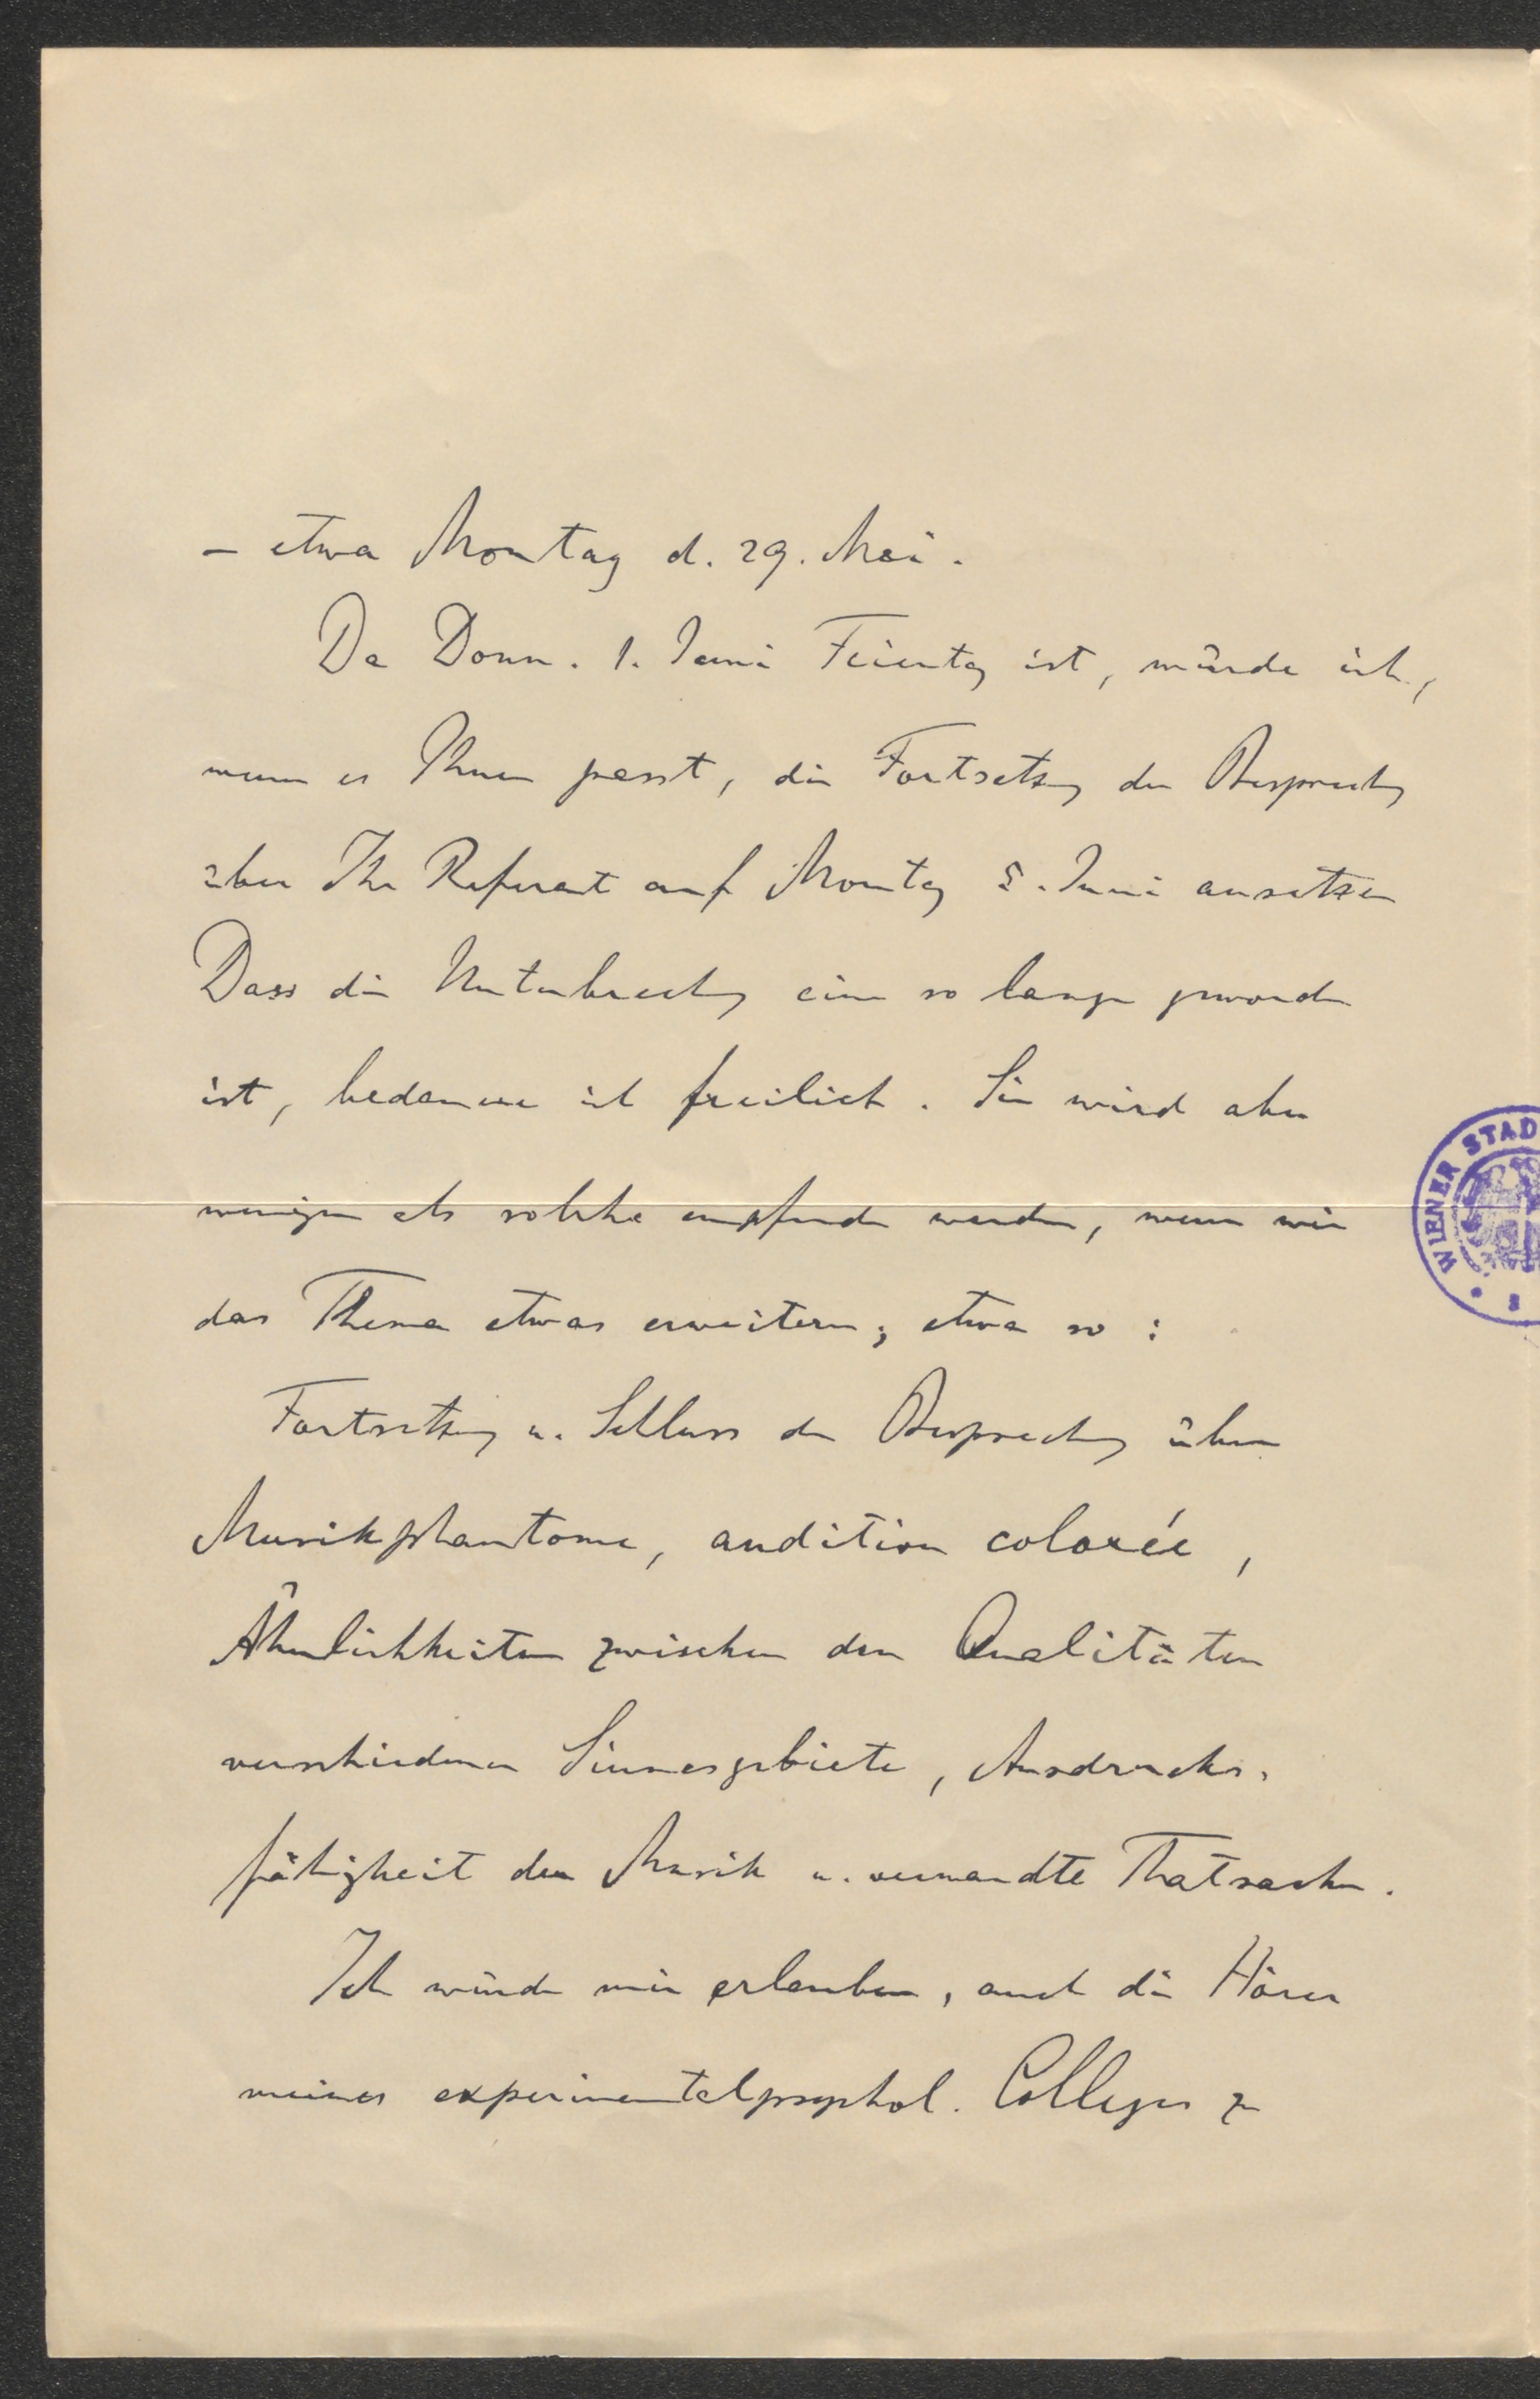 – etwa Montag d. 29. Mai.
Da Donn. 1. Juni Feiertag ist, würde ich,
wenn es Ihnen passt, die Fortsetzung der Besprechung
über Ihr Referat auf Montag 5. Juni ansetzen
Dass die Unterbrechung eine so lange geworden
ist, bedauere ich freilich. Sie wird aber
weniger als solche empfunden werden, wenn wir
das Thema etwas erweitern; etwa so:
Fortsetzung u. Schluss der Besprechung über
Musikphantome, audition colorée,
Ähnlichkeiten zwischen den Qualitäten
verschiedener Sinnesgebiete, Ausdrucks-
fähigkeit der Musik u. verwandte Thatsachen.
Ich würde mir erlauben, auch die Hörer
meines experimentalpsychol. Colleges zu
WIENER STAD